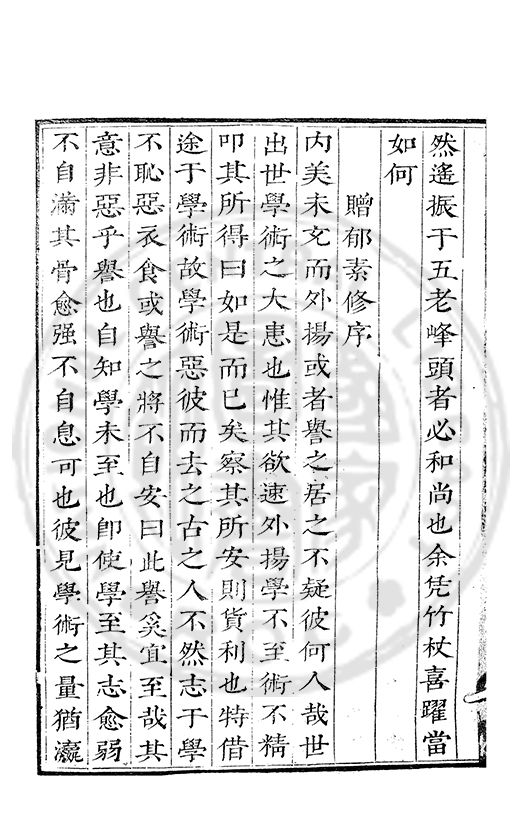 然遙振于五老峰頭者必和尚也余凭竹杖喜躍當
如何
贈郁素修序
內美未充而外揚或者譽之居之不疑彼何人哉世
出世學術之大患也惟其欲速外揚學不至術不精
叩其所得曰如是而已矣察其所安則貨利也特借
途于學術故學術惡彼而去之古之人不然志于學
不恥惡衣食或譽之將不自安曰此譽奚宜至哉其
意非惡乎譽也自知學未至也卽使學至其志愈弱
不自滿其骨愈强不自息可也彼見學術之量猶瀛